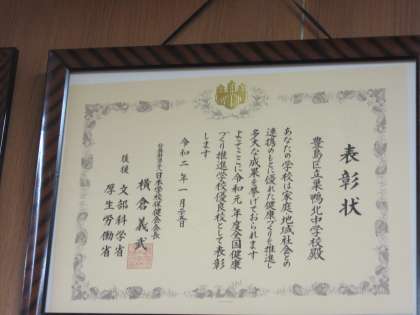 表彰状
豊島区立巣鴨北中学校殿
あなたの学校は家庭、地域社会との
連携のもとに優れた健康づくりを推進し
多大な成果を挙げておられます
よってここに令和元年度全国健康
づくり推進学校優良校として表彰
します
令和二年一月
公益財団法人日本学校保健会会長
横倉義武
後援 文部科学省
厚生労働省